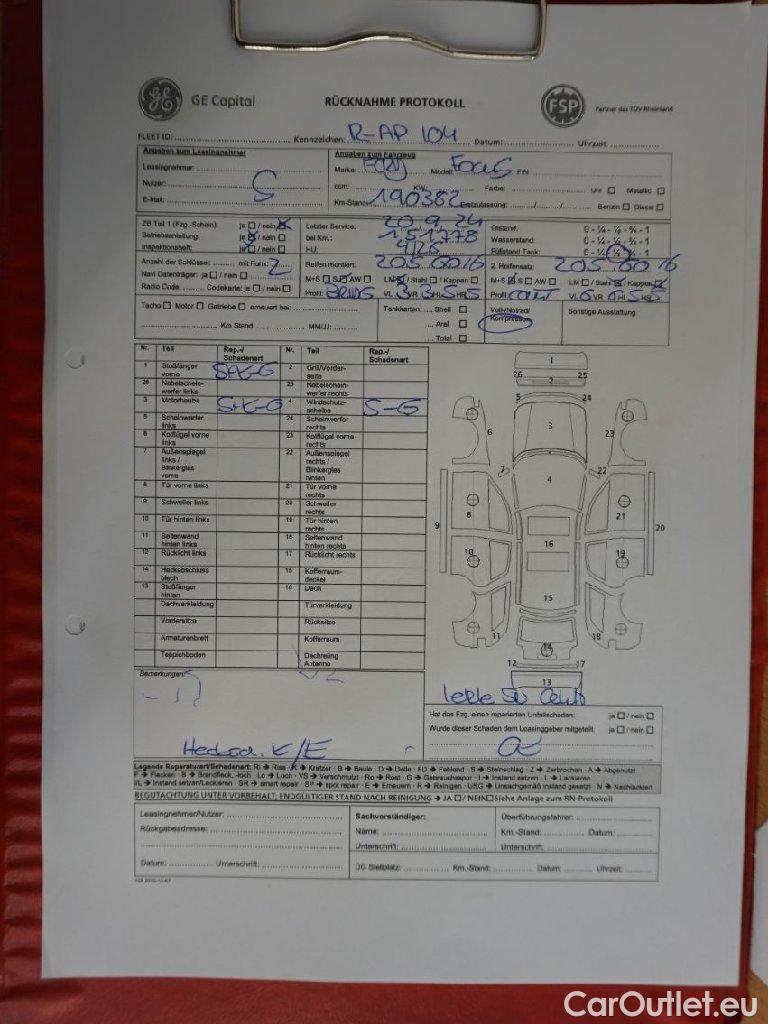 GE Capital
RÜCKNAHME PROTOKOLL
FSP
Partner des TÜV Rheinland
FLEET ID: Kennzeichen: R-AP 104 Datum: Uhrzeit:
Angaben zum Leasingnehmer
Leasingnehmer:
Nutzer:
E-Mail:
Angaben zum Fahrzeug
Marke: Modell: FIN
ccm: KW: Farbe: Uni Metallic
Km-Stand: 190382 Erstzulassung: Benzin Diesel
ZB Teil 1 (Fzg.-Schein): ja / nein
Betriebsanleitung: ja / nein
Inspektionsheft: ja / nein
Letzter Service: 20.9.24
bei Km.: 151778
HU:
Ölstand: 0 - ¼ - ½ - ¾ - 1
Wasserstand: 0 - ¼ - ½ - ¾ - 1
Füllstand Tank: 0 - ¼ - ½ - ¾ - 1
Anzahl der Schlüssel: mit Funk: 2
Navi Datenträger: ja / nein
Radio Code: Codekarte: ja / nein
Reifen montiert: 205 60 16
M+S S AW LM / Stahl / Kappen
Profil: VL 3 VR 3 HL 5 HR 5
2. Reifensatz: 205 60 16
M+S S AW LM / Stahl / Kappen
Profil VL 6 VR 6 HL 5 HR 5
Tacho Motor Getriebe erneuert bei:
Km Stand MM/JJ:
Tankkarten: Shell
Aral
Total
Voll-/Notrad/
Kompressor
Sonstige Ausstattung:
Nr. Teil Rep.-/ Schadenart Nr. Teil Rep.-/ Schadenart
1 Stoßfänger vorne 2 Grill/Vorderseite
26 Nebelscheinwerfer links 25 Nebelscheinwerfer rechts
3 Motorhaube 4 Windschutzscheibe S-G
5 Scheinwerfer links 24 Scheinwerfer rechts
6 Kotflügel vorne links 23 Kotflügel vorne rechts
7 Außenspiegel links / Blinkerglas vorne 22 Außenspiegel rechts / Blinkerglas hinten
8 Tür vorne links 21 Tür vorne rechts
9 Schweller links 20 Schweller rechts
10 Tür hinten links 19 Tür hinten rechts
11 Seitenwand hinten links 18 Seitenwand hinten rechts
12 Rücklicht links 17 Rücklicht rechts
14 Heckabschlussblech 15 Kofferraumdeckel
13 Stoßfänger hinten 16 Dach
Dachverkleidung Türverkleidung
Vordersitze Rücksitze
Armaturenbrett Kofferraum
Teppichboden Dachreling Antenne
1
26 2 25
5 24
6 3 23
7 22
4
9 8 21 20
16
10 19
15
11 18
14
12 17
13
Bemerkungen:
Hat das Fzg. einen reparierten Unfallschaden: ja / nein
Wurde dieser Schaden dem Leasinggeber mitgeteilt: ja / nein
Legende Reparaturart/Schadenart: Ri → Riss K → Kratzer B → Beule D → Delle FD → Fehlend S → Steinschlag Z → Zerbrochen A → Abgenutzt
F → Flecken B → Brandfleck, -loch Lo → Loch VS → Verschmutzt Ro → Rost G → Gebrauchsspur I → Instand setzen L → Lackieren
I/L → Instand setzen/Lackieren SR → smart repair SP → spot repair E → Erneuern R → Reinigen USG → Unsachgemäß instand gesetzt N → Nachlackiert
BEGUTACHTUNG UNTER VORBEHALT; ENDGÜLTIGER STAND NACH REINIGUNG → JA / NEIN Siehe Anlage zum RN-Protokoll
Leasingnehmer/Nutzer:
Rückgabeadresse:
Datum: Unterschrift:
Sachverständiger:
Name:
Unterschrift:
Überführungsfahrer:
Km.-Stand: Datum:
Unterschrift:
Km.-Stand: Datum: Uhrzeit:
CarOutlet.eu